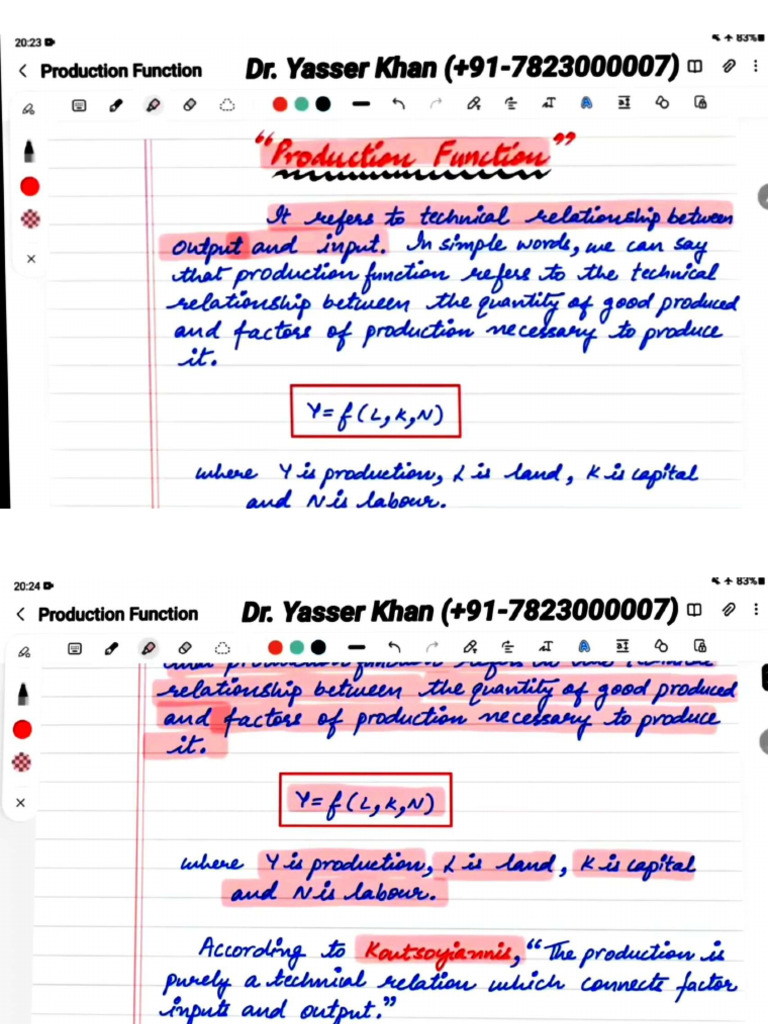 20:23 83%
< Production Function Dr. Yasser Khan (+91-7823000007)
"Production Function"
It refers to technical relationship between
output and input. In simple words, we can say
that production function refers to the technical
relationship between the quantity of good produced
and factors of production necessary to produce
it.
Y = f (L, K, N)
where Y is production, L is land, K is capital
and N is labour.
20:24 83%
< Production Function Dr. Yasser Khan (+91-7823000007)
that production function refers to the technical
relationship between the quantity of good produced
and factors of production necessary to produce
it.
Y = f (L, K, N)
where Y is production, L is land, K is capital
and N is labour.
According to Koutsoyiannis, "The production is
purely a technical relation which connects factor
inputs and output."